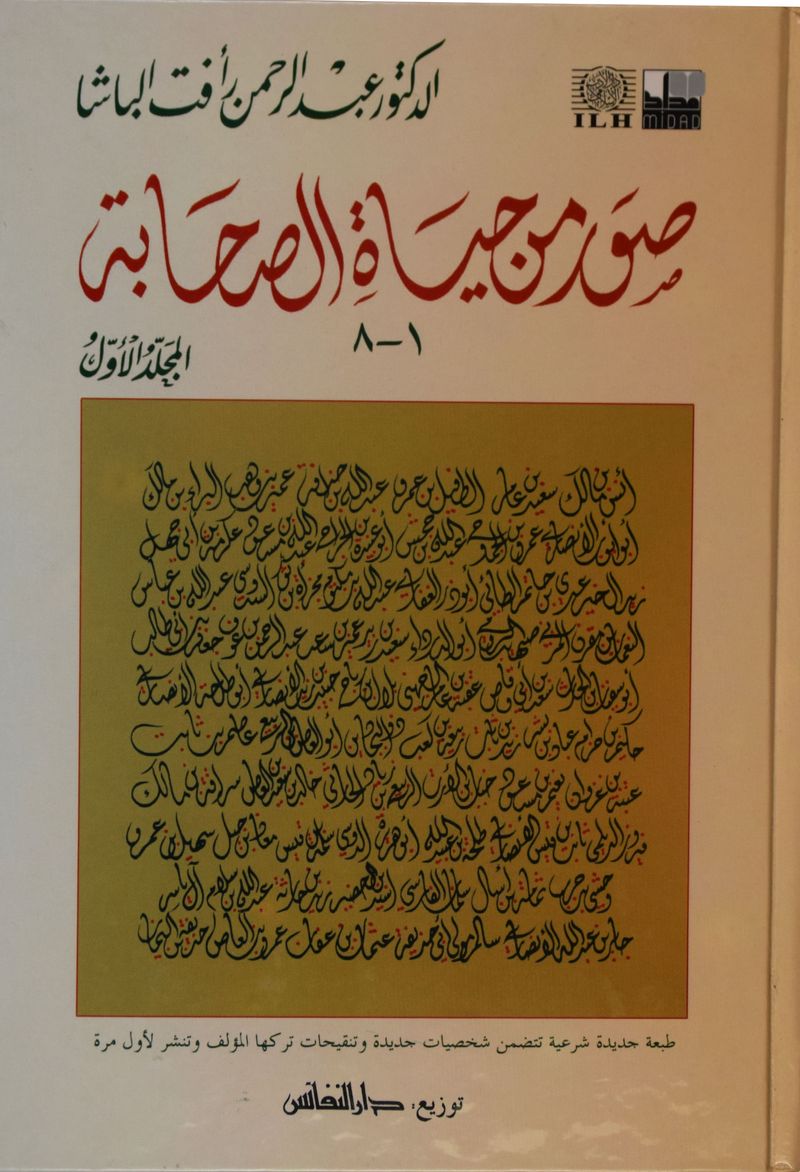 الدكتور عبد الرحمن رأفت الباشا
ILH
مداد
MIDAD
صور من حياة الصحابة
١-٨
المجلد الأول
أنس بن مالك سعيد بن عامر الطفيل بن عمرو عبد الله بن حذافة عمير بن وهب البراء بن مالك
أبو أيوب الأنصاري عمرو بن الجموح عبد الله بن جحش أبو عبيدة بن الجراح عبد الله بن مسعود عكرمة بن أبي جهل
زيد الخير عدي بن حاتم الطائي أبو ذر الغفاري عبد الله بن أم مكتوم مجزأة بن ثور السدوسي عبد الله بن عباس
النعمان بن مقرن المزني صهيب الرومي أبو الدرداء سعيد بن زيد عمير بن سعد عبد الرحمن بن عوف جعفر بن أبي طالب
أبو سفيان بن الحارث سعد بن أبي وقاص عقبة بن عامر الجهني بلال بن رباح حبيب بن زيد الأنصاري أبو طلحة الأنصاري
حكيم بن حزام عباد بن بشر زيد بن ثابت ربيعة بن كعب ذو البجادين أبو العاص بن الربيع عاصم بن ثابت
عتبة بن غزوان نعيم بن مسعود خباب بن الأرت الربيع بن زياد الحارثي خالد بن سعيد بن العاص سراقة بن مالك
فيروز الديلمي ثابت بن قيس الأنصاري طلحة بن عبيد الله أبو هريرة الدوسي سلمة بن قيس معاذ بن جبل سهيل بن عمرو
وحشي بن حرب ثمامة بن أثال سلمان الفارسي أسيد بن الحضير زيد بن حارثة عبد الله بن سلام آل ياسر
جابر بن عبد الله الأنصاري سالم مولى أبي حذيفة عثمان بن عفان عمرو بن العاص حذيفة بن اليمان
طبعة جديدة شرعية تتضمن شخصيات جديدة وتنقيحات تركها المؤلف وتنشر لأول مرة
توزيع: دار النفائس